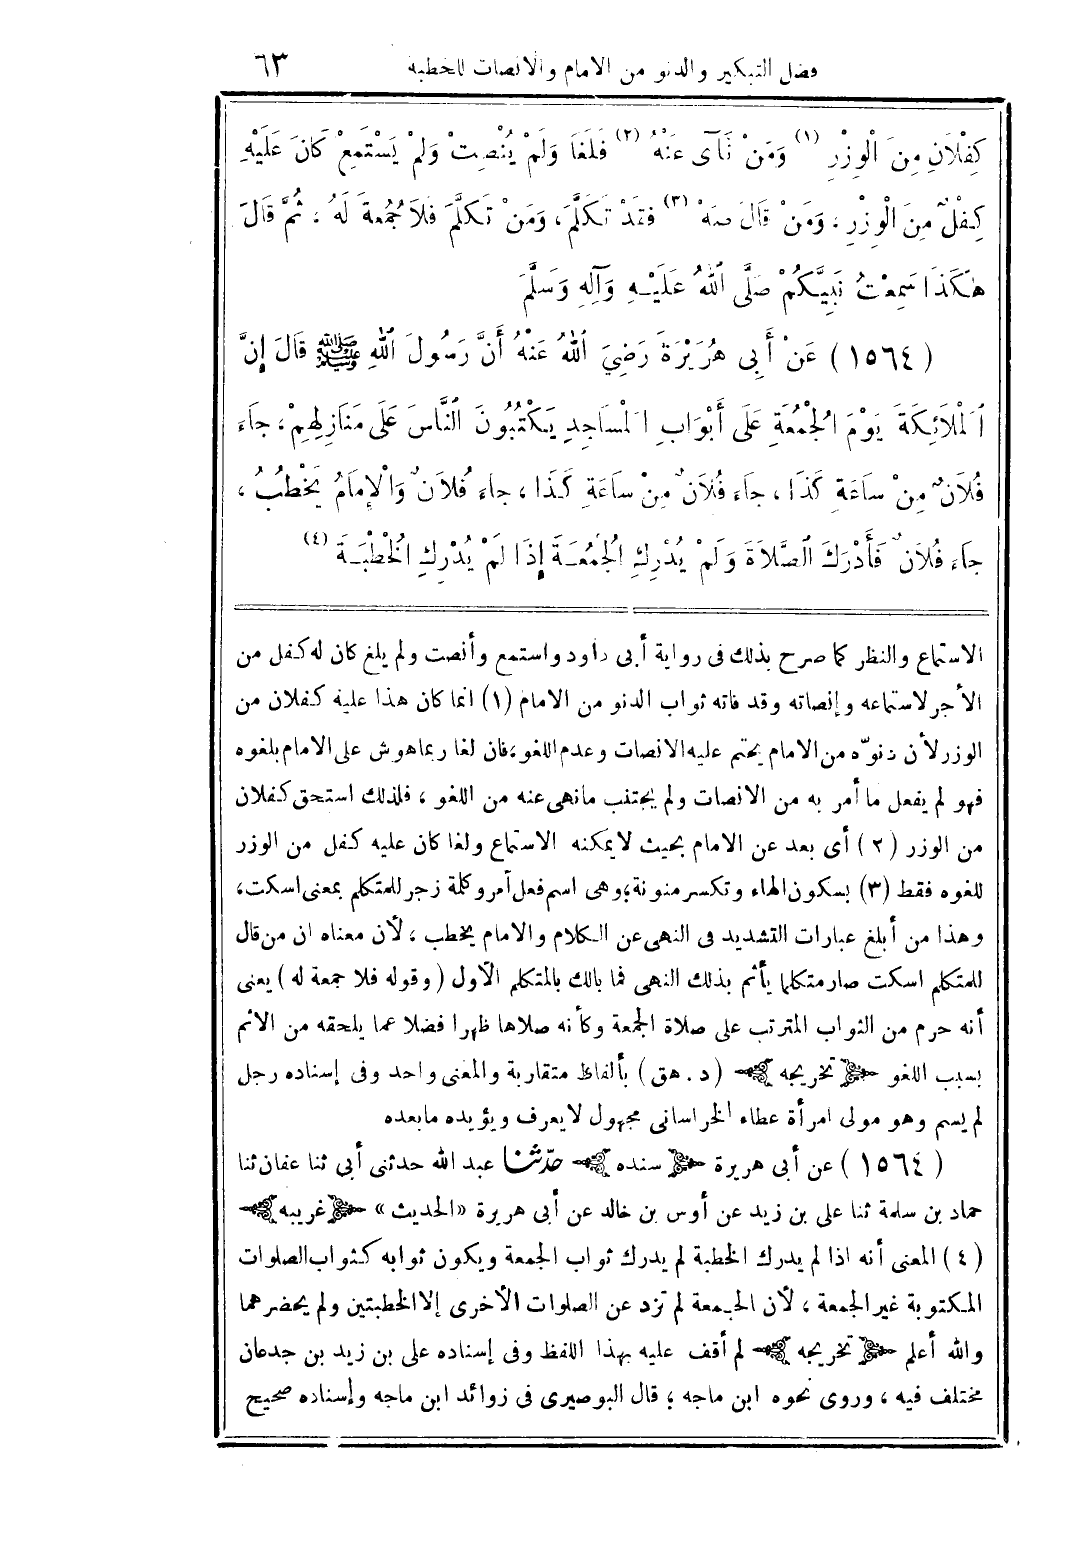 فضل التبكير والدنو من الامام والانصات للخطبة ٦٣
كِفْلَانِ مِنَ الْوِزْرِ (١) وَمَنْ نَآى عَنْهُ (٢) فَلَغَا وَلَمْ يُنْصِتْ وَلَمْ يَسْتَمِعْ كَانَ عَلَيْهِ
كِفْلٌ مِنَ الْوِزْرِ، وَمَنْ قَالَ صَهْ (٣) فَقَدْ تَكَلَّمَ، وَمَنْ تَكَلَّمَ فَلَا جُمُعَةَ لَهُ، ثُمَّ قَالَ
هٰكَذَا سَمِعْتُ نَبِيَّكُمْ صَلَّى اللهُ عَلَيْهِ وَآلِهِ وَسَلَّمَ
(١٥٦٤) عَنْ أَبِى هُرَيْرَةَ رَضِيَ اللهُ عَنْهُ أَنَّ رَسُولَ اللهِ ﷺ قَالَ إِنَّ
الْمَلَائِكَةَ يَوْمَ الْجُمُعَةِ عَلَى أَبْوَابِ الْمَسَاجِدِ يَكْتُبُونَ النَّاسَ عَلَى مَنَازِلِهِمْ، جَاءَ
فُلَانٌ مِنْ سَاعَةِ كَذَا، جَاءَ فُلَانٌ مِنْ سَاعَةِ كَذَا، جَاءَ فُلَانٌ وَالْإِمَامُ يَخْطُبُ،
جَاءَ فُلَانٌ فَأَدْرَكَ الصَّلَاةَ وَلَمْ يُدْرِكِ الْجُمُعَةَ إِذَا لَمْ يُدْرِكِ الْخُطْبَةَ (٤)
الاستماع والنظر كما صرح بذلك فى رواية أبى داود واستمع وأنصت ولم يلغ كان له كفل من
الأجر لاستماعه وإنصاته وقد فاته ثواب الدنو من الامام (١) انما كان هذا عليه كفلان من
الوزر لأن دنوّه من الامام يحتم عليه الانصات وعدم اللغو، فان لغا ربما هوش على الامام بلغوه
فهو لم يفعل ما أمر به من الانصات ولم يجتنب ما نهى عنه من اللغو، فلذلك استحق كفلان
من الوزر (٢) أى بعد عن الامام بحيث لا يمكنه الاستماع ولغا كان عليه كفل من الوزر
للغوه فقط (٣) بسكون الهاء وتكسر منونة؛ وهى اسم فعل أمر وكلة زجر للمتكلم بمعنى اسكت،
وهذا من أبلغ عبارات التشديد فى النهى عن الكلام والامام يخطب، لأن معناه ان من قال
للمتكلم اسكت صار متكلما يأثم بذلك النهى فما بالك بالمتكلم الأول (وقوله فلا جمعة له) يعنى
أنه حرم من الثواب المترتب على صلاة الجمعة وكأنه صلاها ظهرا فضلا عما يلحقه من الاثم
بسبب اللغو ﴿تخريجه﴾ (د. هق) بألفاظ متقاربة والمعنى واحد وفى إسناده رجل
لم يسم وهو مولى امرأة عطاء الخراسانى مجهول لا يعرف ويؤيده ما بعده
(١٥٦٤) عن أبى هريرة ﴿سنده﴾ حدّثنا عبد الله حدثنى أبى ثنا عفان ثنا
حماد بن سلمة ثنا على بن زيد عن أوس بن خالد عن أبى هريرة «الحديث» ﴿غريبه﴾
(٤) المعنى أنه اذا لم يدرك الخطبة لم يدرك ثواب الجمعة ويكون ثوابه كثواب الصلوات
المكتوبة غير الجمعة، لأن الجمعة لم تزد عن الصلوات الأخرى إلا الخطبتين ولم يحضرهما
والله أعلم ﴿تخريجه﴾ لم أقف عليه بهذا اللفظ وفى إسناده على بن زيد بن جدعان
مختلف فيه، وروى نحوه ابن ماجه؛ قال البوصيرى فى زوائد ابن ماجه وإسناده صحيح